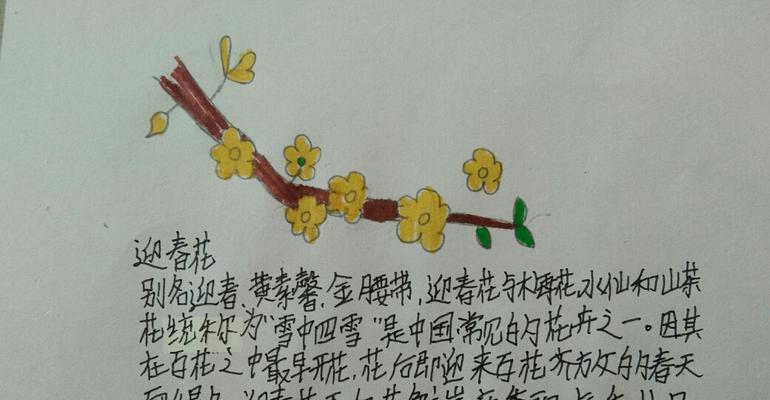 迎春花
别名迎春、黄素馨、金腰带,迎春花与木梅花、水仙和山茶
花统称为"雪中四雪"是中国常见的花卉之一。因其
在百花之中最早开花,花后即迎来百花齐放的春天